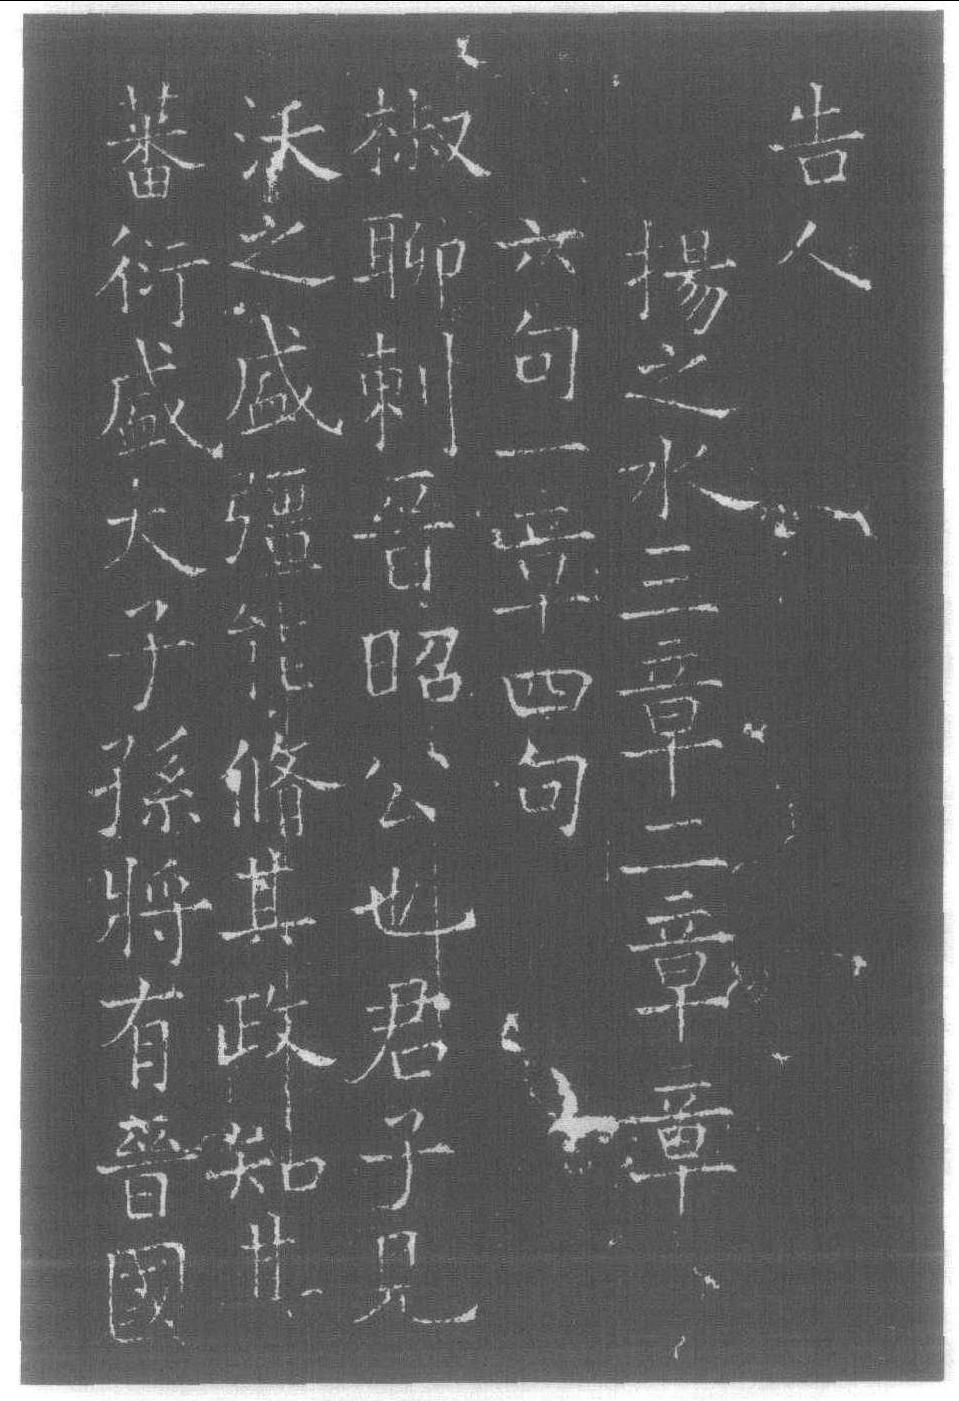 告人
揚之水三章二章章
六句一章四句
椒聊刺晉昭公也君子見
沃之盛彊能脩其政知其
蕃衍盛大子孫將有晉國